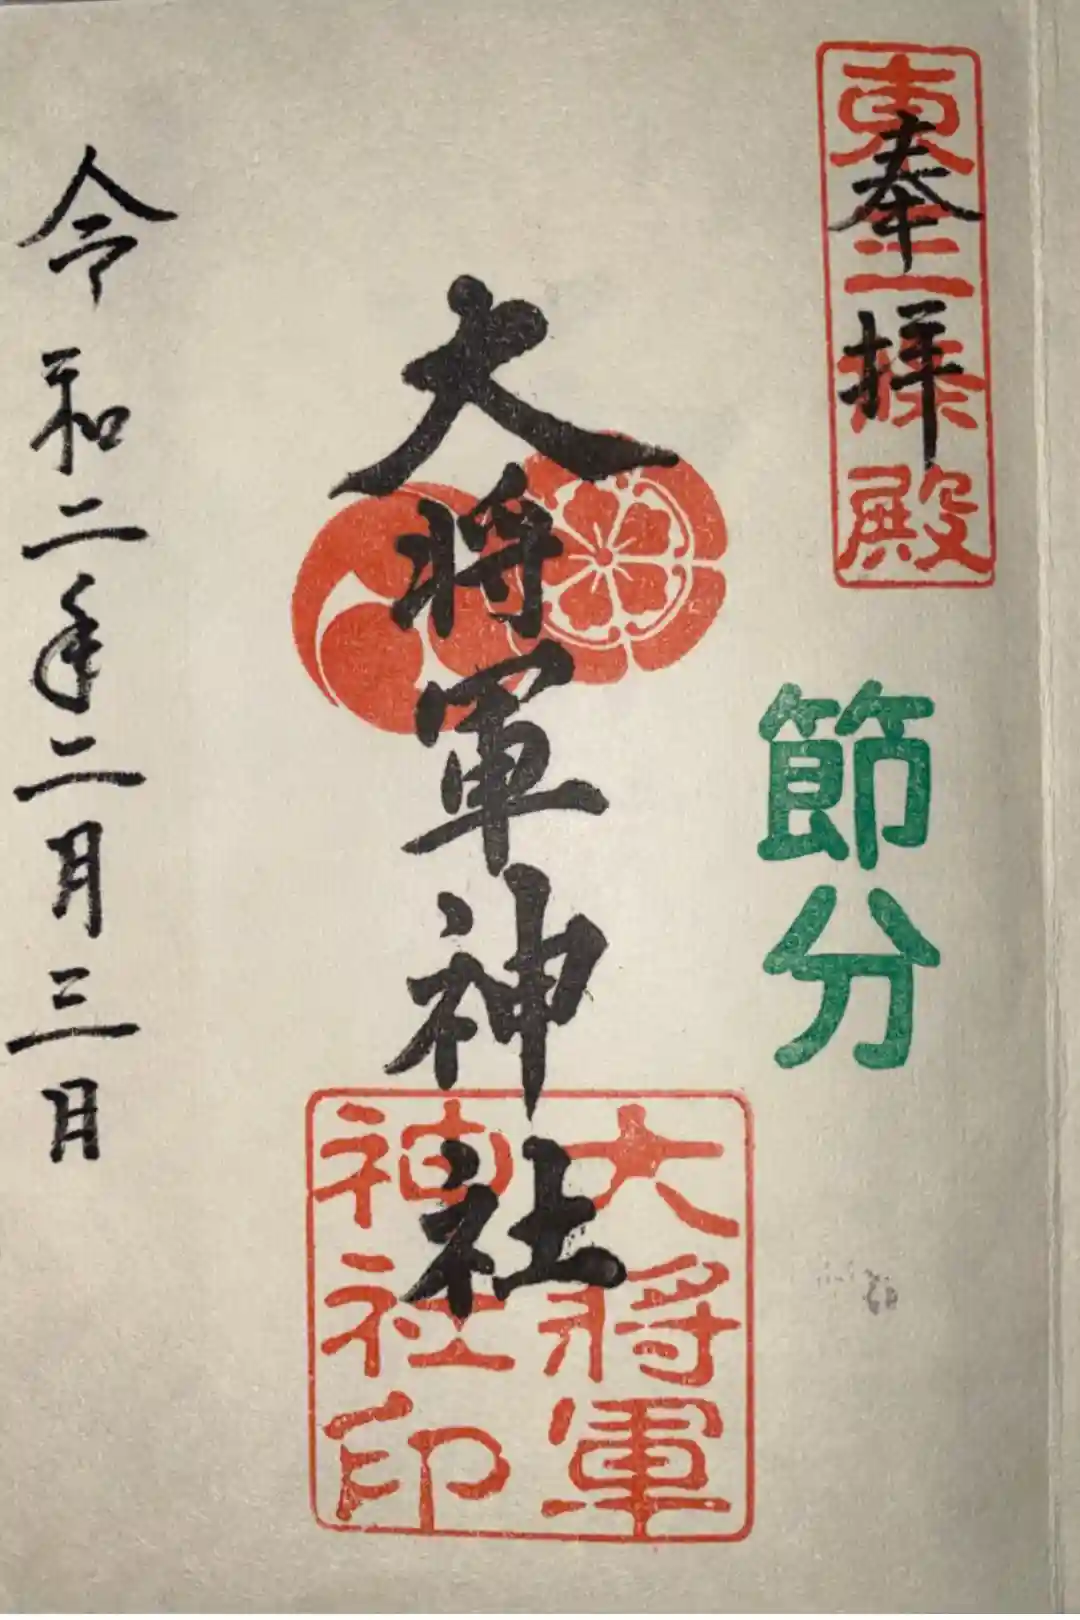 奉拝
東三條殿
節分
大将軍神社
大将軍
神社印
令和二年二月三日